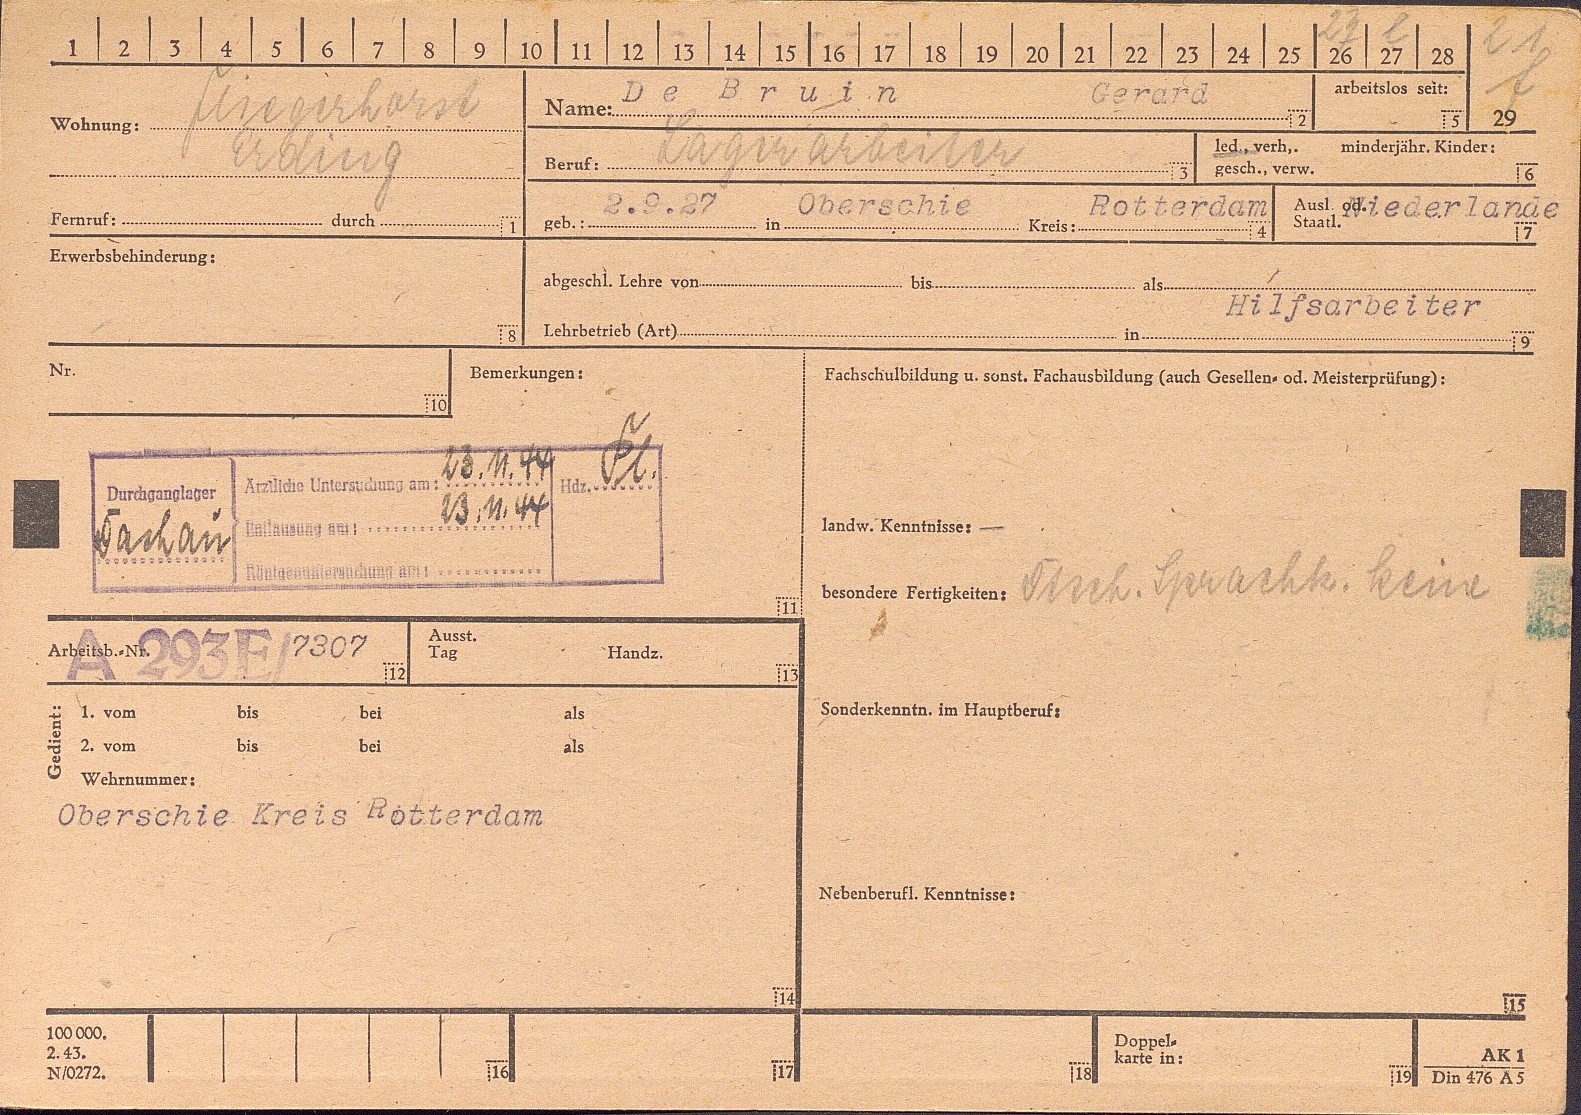 1 2 3 4 5 6 7 8 9 10 11 12 13 14 15 16 17 18 19 20 21 22 23 24 25 26 27 28
29
21
Wohnung: Fliegerhorst
Erding
Fernruf: durch 1
Name: De Bruin Gerard 2
arbeitslos seit: 5
Beruf: Lagerarbeiter 3
led., verh,. minderjähr. Kinder:
gesch., verw. 6
geb.: 2.9.27 in Oberschie Kreis: Rotterdam 4
Ausl. od. Niederlande
Staatl. 7
Erwerbsbehinderung:
8
abgeschl. Lehre von bis als
Hilfsarbeiter
Lehrbetrieb (Art) in 9
Nr.
10
Bemerkungen:
Durchganglager
Dachau
Ärztliche Untersuchung am: 23.11.44
Entlausung am: 23.11.44
Röntgenuntersuchung am:
Hdz.
11
Arbeitsb.-Nr. A 293E/7307 12
Ausst.
Tag Handz. 13
Gedient:
1. vom bis bei als
2. vom bis bei als
Wehrnummer:
Oberschie Kreis Rotterdam
14
Fachschulbildung u. sonst. Fachausbildung (auch Gesellen- od. Meisterprüfung):
landw. Kenntnisse: —
besondere Fertigkeiten: Dtsch. Sprachk. keine
Sonderkenntn. im Hauptberuf:
Nebenberufl. Kenntnisse:
15
100 000.
2. 43.
N/0272.
16
17
18
Doppel-
karte in: 19
AK 1
Din 476 A 5